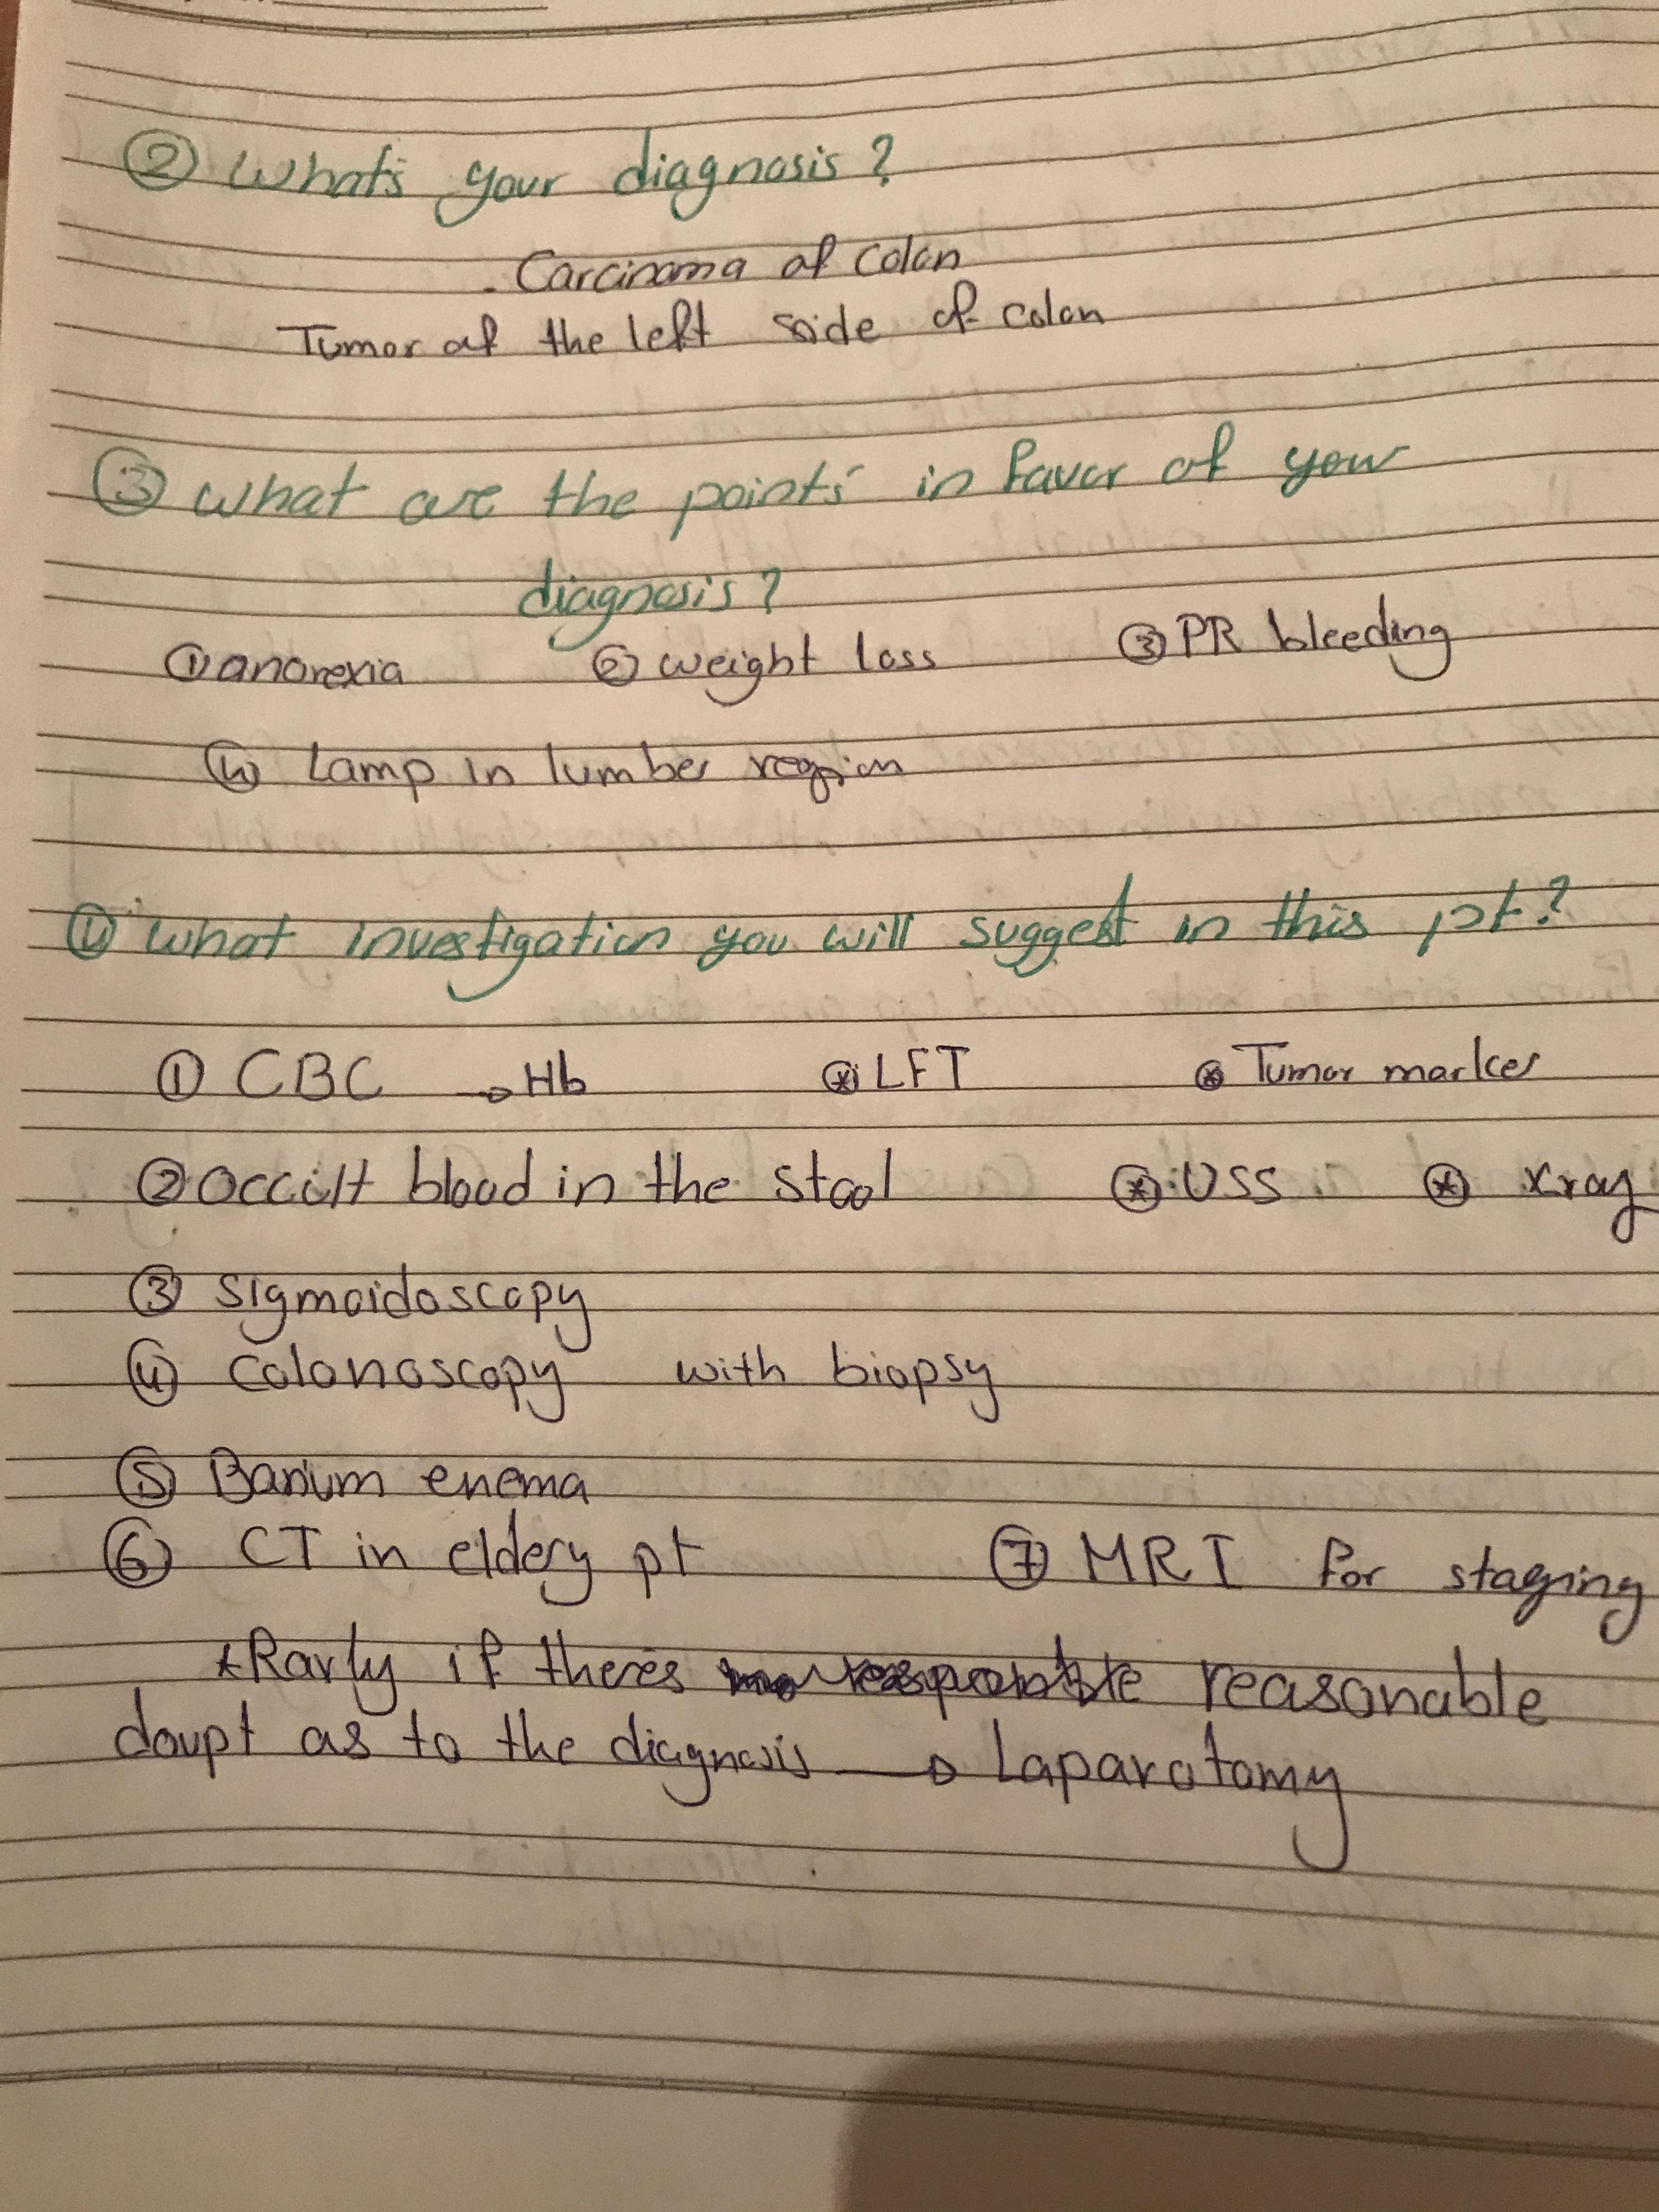 ② What's your diagnosis?
- Carcinoma of colon
Tumor of the left side of colon
③ What are the points in favor of your
diagnosis?
① anorexia ② weight loss ③ PR bleeding
④ Lamp in lumber region
④ What investigation you will suggest in this pt?
① CBC → Hb ⊛ LFT ⊛ Tumor marker
② Occult blood in the stool ⊛ USS ⊛ xray
③ Sigmoidoscopy
④ Colonoscopy with biopsy
⑤ Barium enema
⑥ CT in eldery pt ⑦ MRI for staging
*Rarly if there's reasonable
doupt as to the diagnosis → Laparotomy